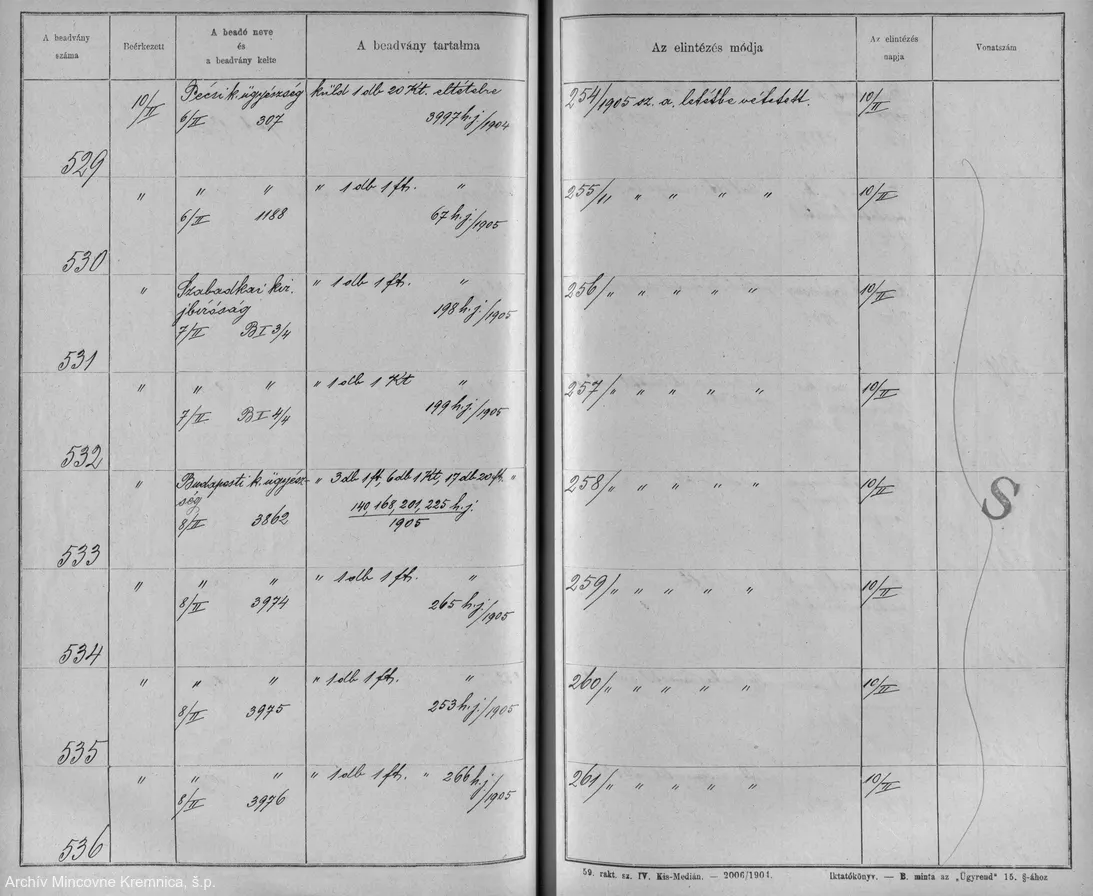 A beadvány száma
Beérkezett
A beadó neve és a beadvány kelte
A beadvány tartalma
Az elintézés módja
Az elintézés napja
Vonatszám
529
10/II
Bécsi k. ügyészség
6/II 307
küld 1 db 20 Kt. eltételre
3997 h.j./1904
254/1905 sz. a. letétbe vétetett.
10/II
530
"
" "
6/II 1188
" 1 db 1 ft. "
67 h.j./1905
255/" " " " "
10/II
531
"
Szabadkai kir.
jbíróság
7/II B I 3/4
" 1 db 1 ft. "
198 h.j./1905
256/" " " "
10/II
532
"
" "
7/II B I 4/4
" 1 db 1 Kt "
199 h.j./1905
257/" " " " "
10/II
533
"
Budapesti k. ügyész-
ség
8/II 3862
" 3 db 1 ft, 6 db 1 Kt, 17 db 20 ft. "
140, 168, 201, 225 h.j.
1905
258/" " " " "
10/II
534
"
" "
8/II 3974
" 1 db 1 ft. "
265 h.j./1905
259/" " " " "
10/II
535
"
" "
8/II 3975
" 1 db 1 ft. "
253 h.j./1905
260/" " " " "
10/II
536
"
" "
8/II 3976
" 1 db 1 ft. " 266 h.j./1905
261/" " " " "
10/II
S
59. rakt. sz. IV. Kis-Medián. — 2006/1904.
Iktatókönyv. — B. minta az „Ügyrend" 15. §-ához
Archív Mincovne Kremnica, š.p.